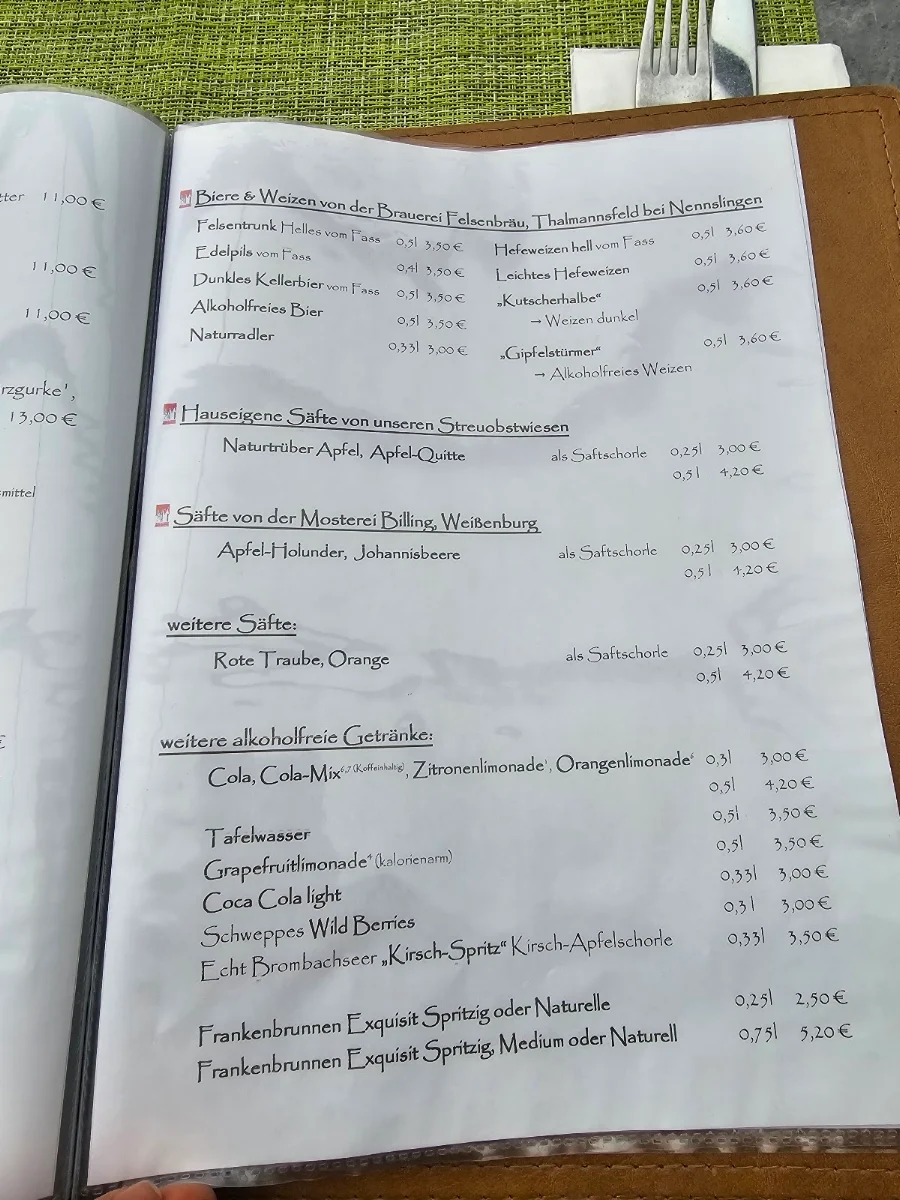 tter 11,00 €
11,00 €
11,00 €
rzgurke',
13,00 €
mittel
€
Biere & Weizen von der Brauerei Felsenbräu, Thalmannsfeld bei Nennslingen
Felsentrunk Helles vom Fass 0,5l 3,50 €
Edelpils vom Fass 0,4l 3,50 €
Dunkles Kellerbier vom Fass 0,5l 3,50 €
Alkoholfreies Bier 0,5l 3,50 €
Naturradler 0,33l 3,00 €
Hefeweizen hell vom Fass 0,5l 3,60 €
Leichtes Hefeweizen 0,5l 3,60 €
„Kutscherhalbe“ 0,5l 3,60 €
→ Weizen dunkel
„Gipfelstürmer“ 0,5l 3,60 €
→ Alkoholfreies Weizen
Hauseigene Säfte von unseren Streuobstwiesen
Naturtrüber Apfel, Apfel-Quitte als Saftschorle 0,25l 3,00 €
0,5l 4,20 €
Säfte von der Mosterei Billing, Weißenburg
Apfel-Holunder, Johannisbeere als Saftschorle 0,25l 3,00 €
0,5l 4,20 €
weitere Säfte:
Rote Traube, Orange als Saftschorle 0,25l 3,00 €
0,5l 4,20 €
weitere alkoholfreie Getränke:
Cola, Cola-Mix⁶,⁷ (Koffeinhaltig), Zitronenlimonade¹, Orangenlimonade⁶ 0,3l 3,00 €
0,5l 4,20 €
Tafelwasser 0,5l 3,50 €
Grapefruitlimonade⁴ (kalorienarm) 0,5l 3,50 €
Coca Cola light 0,33l 3,00 €
Schweppes Wild Berries 0,3l 3,00 €
Echt Brombachseer „Kirsch-Spritz“ Kirsch-Apfelschorle 0,33l 3,50 €
Frankenbrunnen Exquisit Spritzig oder Naturelle 0,25l 2,50 €
Frankenbrunnen Exquisit Spritzig, Medium oder Naturell 0,75l 5,20 €